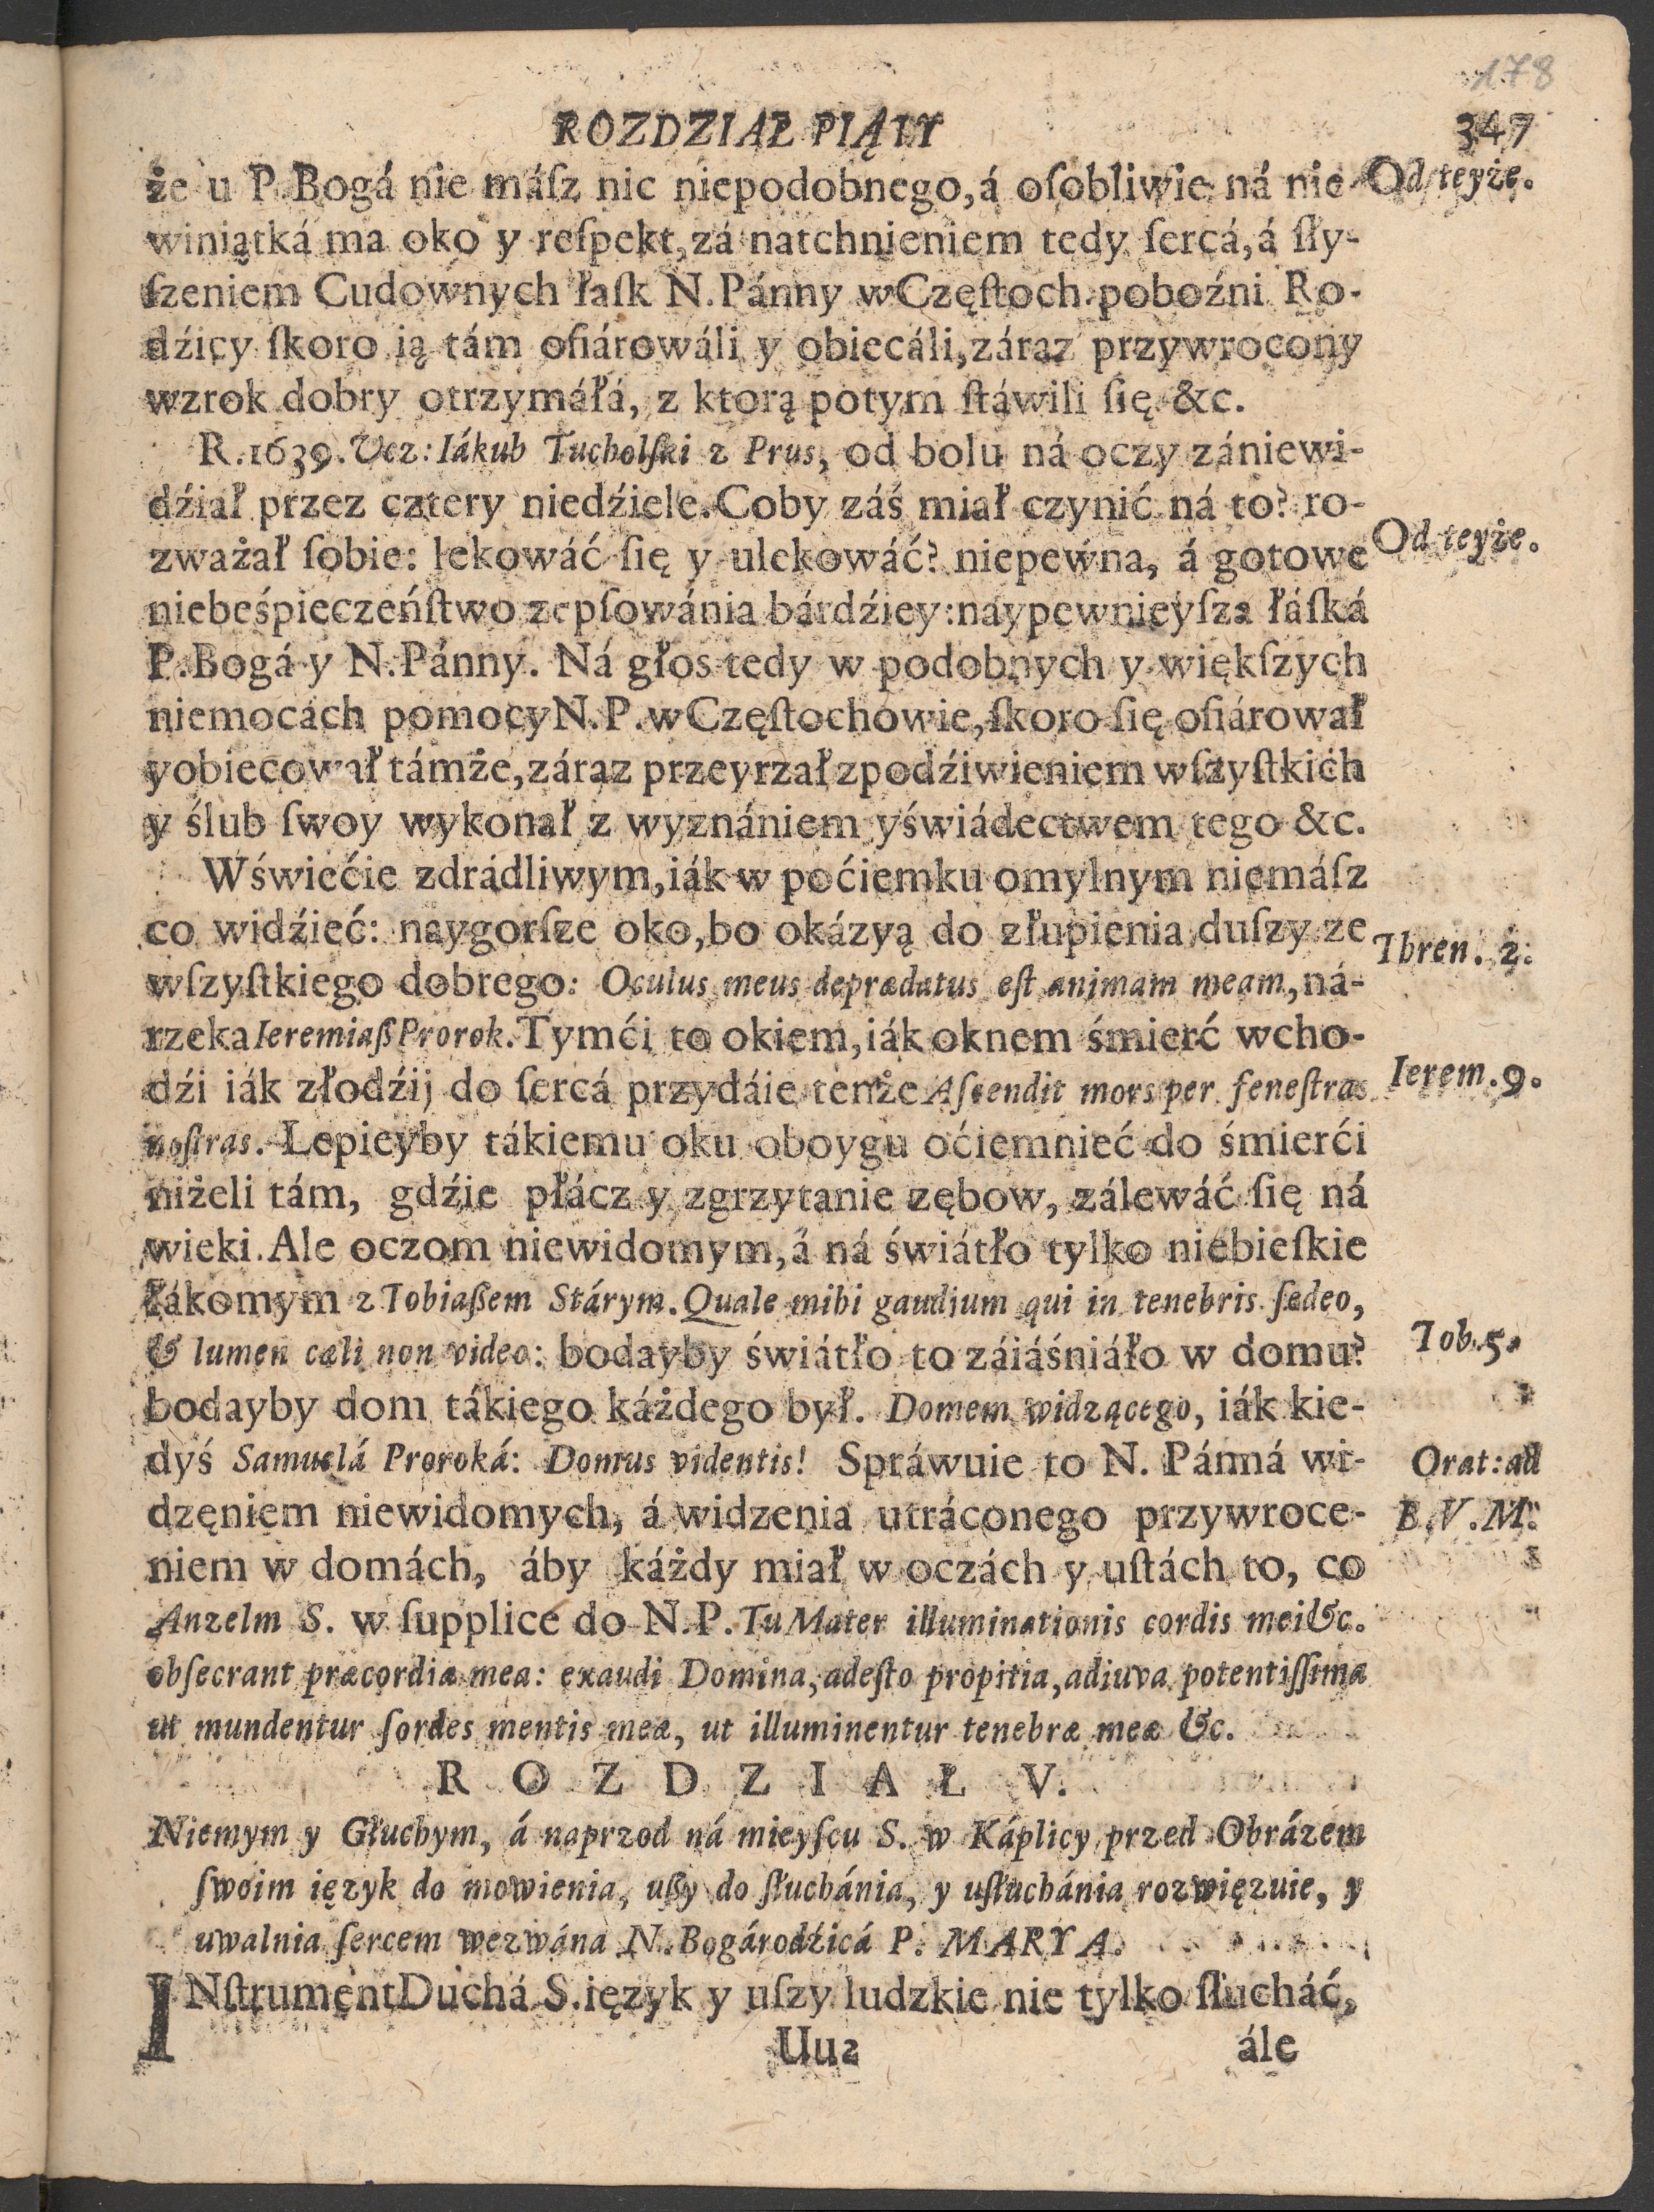 178
ROZDZIAŁ PIĄTY 347
że u P. Bogá nie máſz nic niepodobnego, á oſobliwie ná nie-
Od teyże.
winiątká ma oko y reſpekt, zá natchnieniem tedy ſercá, á ſły-
ſzeniem Cudownych łaſk N. Pánny w Częſtoch. poboźni Ro-
dźicy ſkoro ią tám ofiárowáli y obiecáli, záraz przywrocony
wzrok dobry otrzymáłá, z ktorą potym ſtáwili ſię &c.
R. 1639. Ucz: Iákub Tucholſki z Prus, od bolu ná oczy zániewi-
dźiał przez cztery niedźiele. Coby záś miał czynić ná to? ro-
zważał ſobie: lekowáć ſię y ulekowáć? niepewna, á gotowe
Od teyże.
niebeśpieczeńſtwo zepſowánia bárdźiey: naypewnieyſza łáſká
P. Bogá y N. Pánny. Ná głos tedy w podobnych y więkſzych
niemocách pomocy N. P. w Częſtochowie, ſkoro ſię ofiárował
y obiecował támże, záraz przeyrzał z podźiwieniem wſzyſtkich
y ślub ſwoy wykonał z wyznániem y świádectwem tego &c.
W świećie zdrádliwym, iák w poćiemku omylnym niemáſz
co widźieć: naygorſze oko, bo okázyą do złupienia duſzy ze
Thren. 2.
wſzyſtkiego dobrego: Oculus meus deprædatus eſt animam meam, ná-
rzeka Ieremiaß Prorok. Tymći to okiem, iák oknem śmierć wcho-
dźi iák złodźij do ſercá przydáie tenże Aſcendit mors per feneſtras
Ierem. 9.
noſtras. Lepieyby tákiemu oku oboygu oćiemnieć do śmierći
niżeli tám, gdźie płácz y zgrzytanie zębow, zálewáć ſię ná
wieki. Ale oczom niewidomym, á ná świátło tylko niebieſkie
łákomym z Tobiaßem Stárym. Quale mihi gaudium qui in tenebris ſedeo,
& lumen cæli non video: bodayby świátło to záiáśniáło w domu?
Tob. 5.
bodayby dom tákiego káżdego był. Domem widzącego, iák kie-
dyś Samuelá Proroká: Domus videntis! Spráwuie to N. Pánná wi-
Orat: ad
dzęniem niewidomych, á widzenia utráconego przywroce-
B. V. M.
niem w domách, áby káżdy miał w oczách y uſtách to, co
Anzelm S. w ſupplice do N. P. Tu Mater illuminationis cordis mei &c.
obſecrant præcordia mea: exaudi Domina, adeſto propitia, adiuva potentiſſima
ut mundentur ſordes mentis meæ, ut illuminentur tenebræ meæ &c.
ROZDZIAŁ V.
Niemym y Głuchym, á naprzod ná mieyſcu S. w Káplicy przed Obrázem
ſwoim ięzyk do mowienia, ußy do ſłuchánia, y uſłuchánia rozwięzuie, y
uwalnia ſercem wezwána N. Bogárodźicá P. MARYA.
INſtrument Duchá S. ięzyk y uſzy ludzkie nie tylko ſłucháć,
Uu2 ále